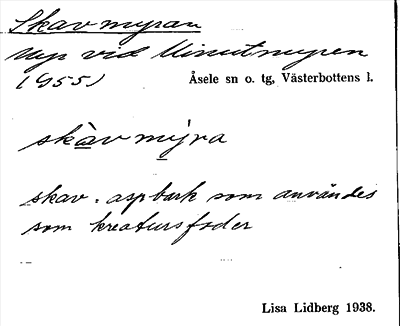 Skavmyran
Myr vid Minutmyren
(955) Åsele sn o. tg, Västerbottens l.
skàv mýra
skav = aspbark som användes
som kreatursfoder
Lisa Lidberg 1938.